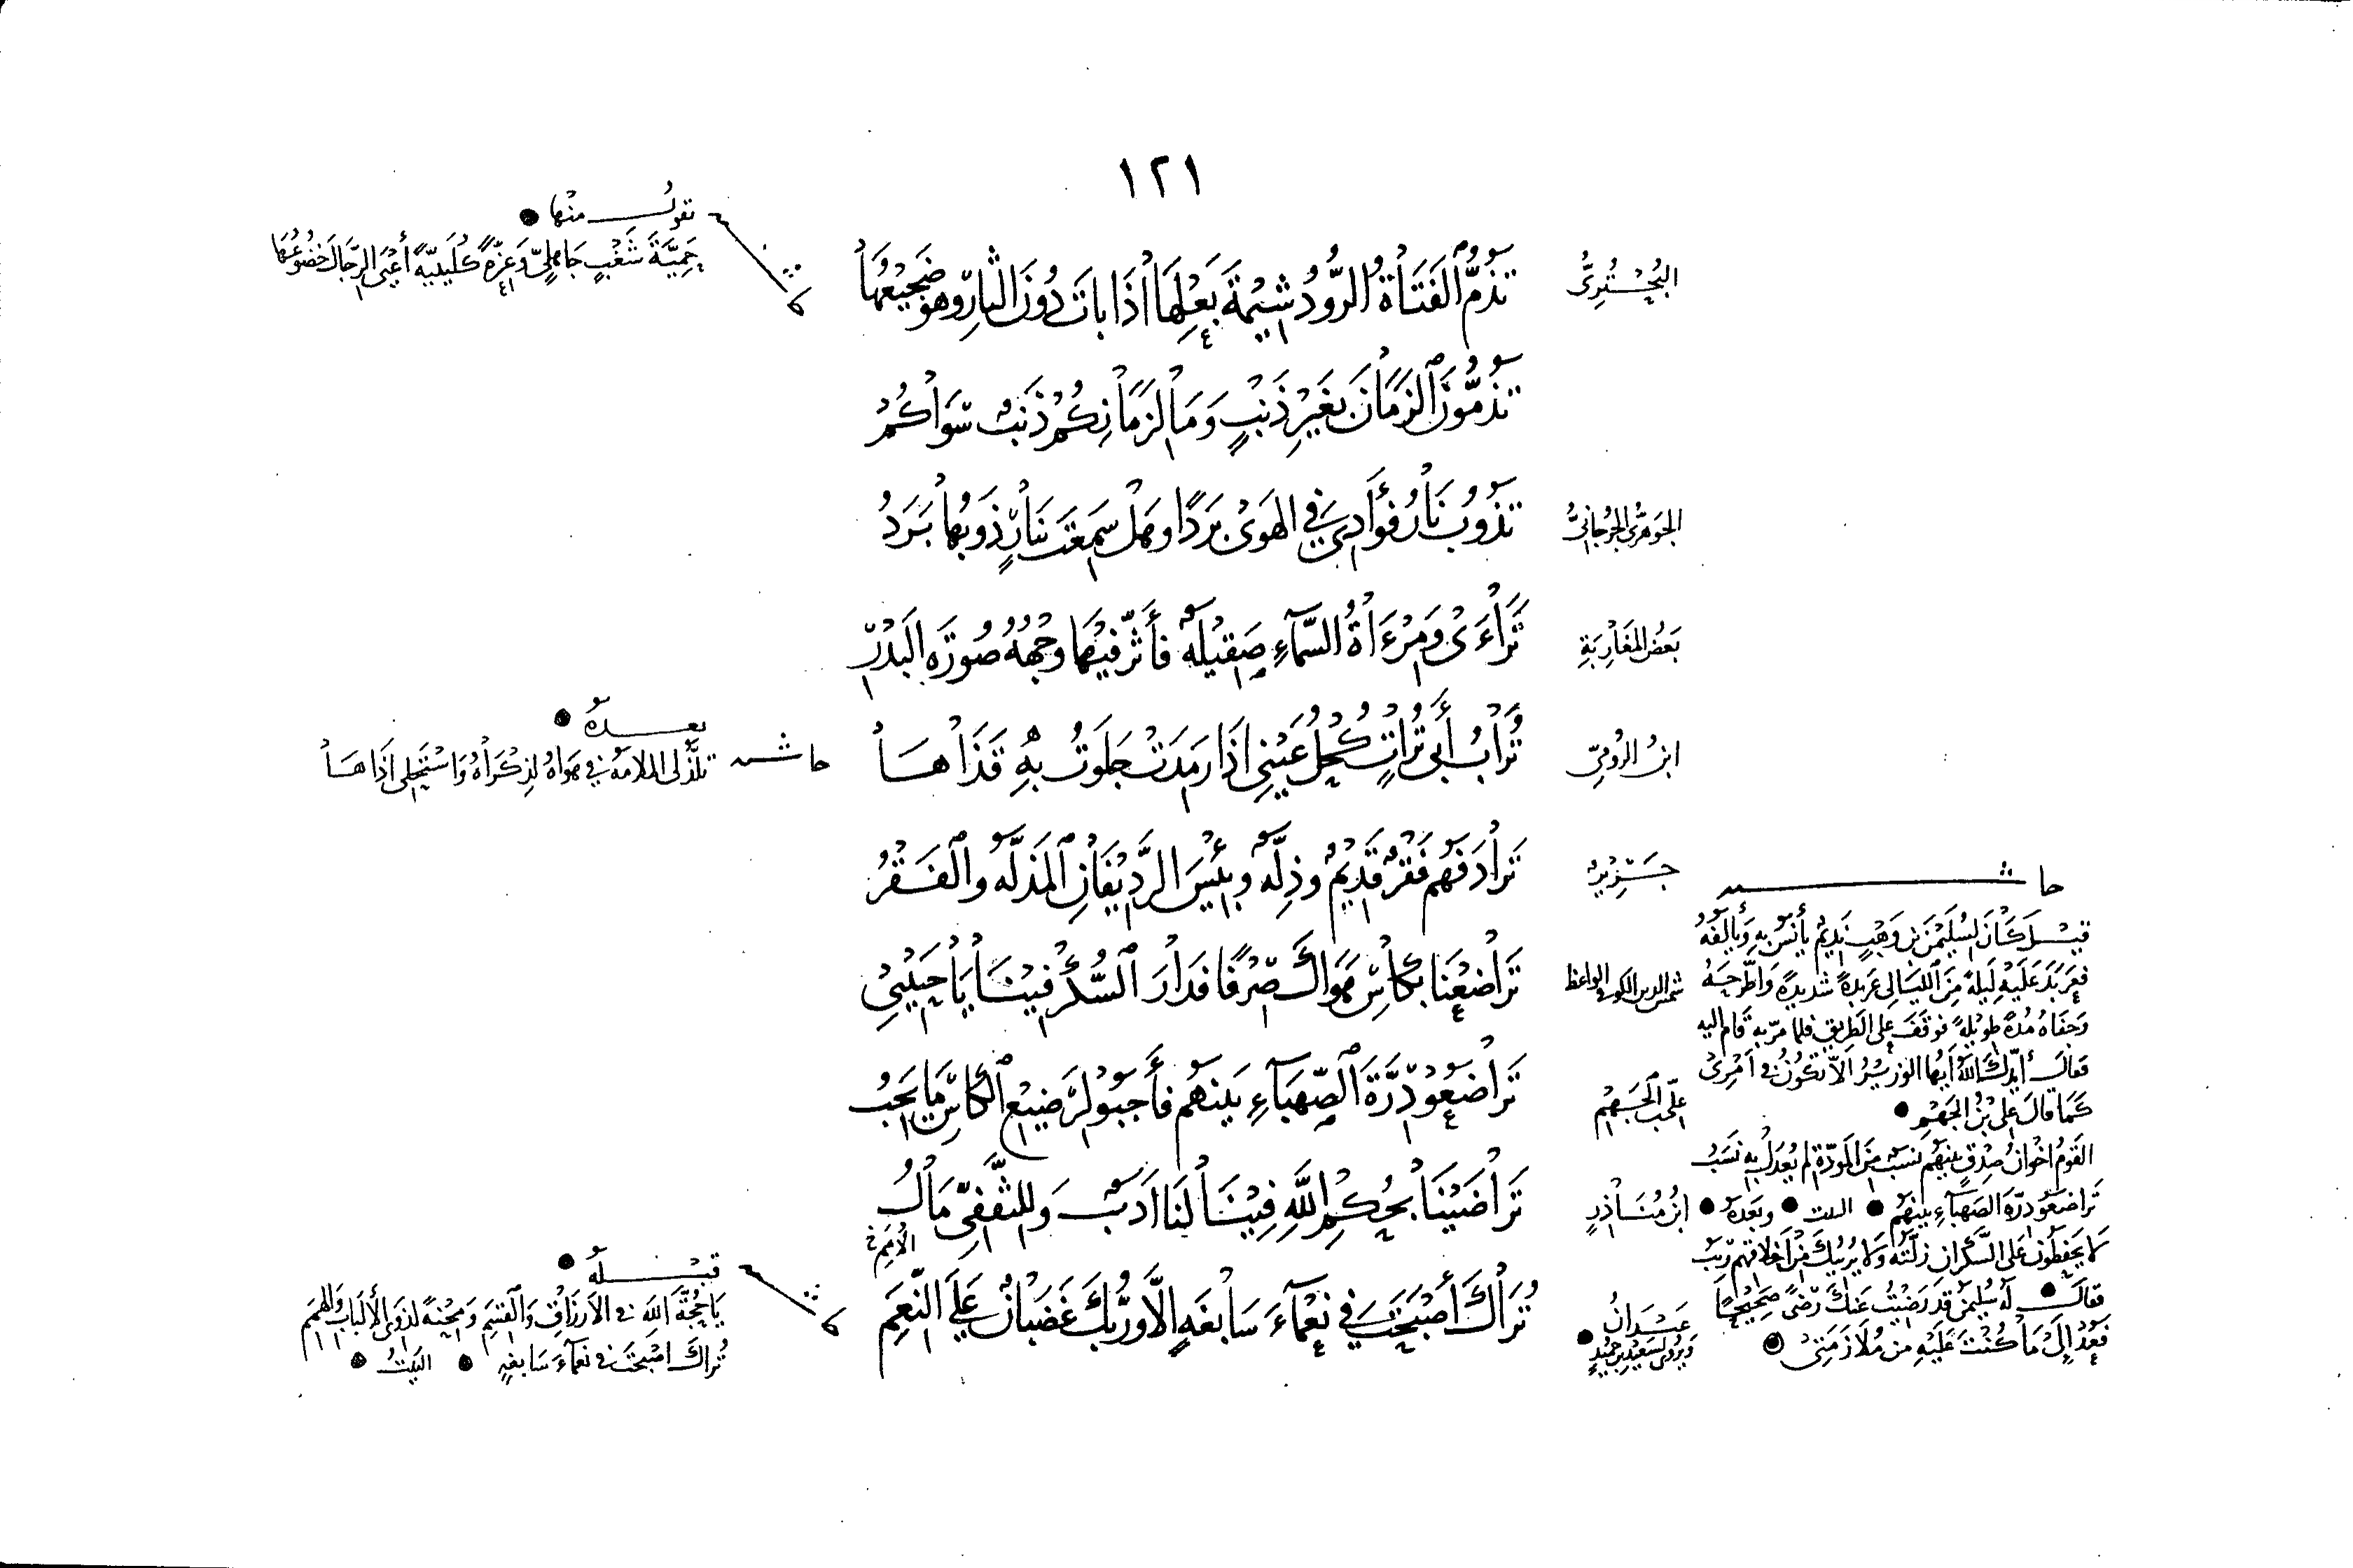 ١٢١
البُحْتُرِيُّ
تَذُمُّ الفَتَاةُ الرُّودُ شِيْمَةَ بَعْلِهَا اذَا بَاتَ دُونَ الثَّارِ وهوَ ضَجِيْعُهَا
حاشية
تقول منها •
حَمِيَّةَ شَغْبٍ جَاهِلِيٍّ وَعِزَّةً كُلَيْبِيَّةً أَعْيَى الرِّجَالَ خُضُوعُهَا
تَذُمُّوْنَ الزَّمَانَ بِغَيْرِ ذَنْبٍ وَمَا لِزَمَانِكُمْ ذَنْبٌ سِوَاكُمْ
الجَوهَرِيُّ الجُرْجَانِيُّ
تَذُوبُ نَارُ فُؤَادِي فِي الهَوَى بَرَدًا وهَلْ سَمِعْتَ بِنَارٍ ذَوبُهَا بَرَدُ
بَعْضُ المَغَارِبَةِ
تَرَاءَى وَمِرْءَاةُ السَّمَاءِ صَقِيْلَةٌ فأَثَّرَ فِيْهَا وَجْهُهُ صُورَةَ البَدْرِ
ابنُ الرُّومِيّ
تُرَابُ أَبِي تُرَابٍ كُحْلُ عَيْنِي اذَا رَمَدَتْ جَلَوتُ بِهِ قَذَاهَا
حاشية
بعده •
تَلَذُّ لِي المَلَامَةُ فِي هَوَاهُ لِذِكْرَاهُ وَاسْتَحْلِي اَذَاهَا
جَرِيْرٌ
تَرَادَفَهُم فَقْرٌ قَدِيْمٌ وذِلَّةٌ وبِئْسَ الرَّدِيْفَانِ المَذَلَّةُ والفَقْرُ
شمس الدين الكوفي الواعظ
تَرَاضَعْنَا بكأسِ هَوَاكَ صِرْفًا فَدَارَ السُّكْرُ فِيْنَا يَا حَبِيْبِي
عَلِيّ بن الجَهْمِ
تَرَاضَعُوْ دِرَّةَ الصَّهْبَاءِ بَيْنَهُم فأَوْجَبُو لِرَضِيْعِ الكَأسِ مَا يَجِبُ
ابنُ مُنَاذِرٍ
تَرَاضَيْنَا بِحُكْمِ اللّهِ فِيْنَا لَنَا اَدَبٌ وَلِلثَّقَفِيِّ مَالُ
عَبْدَانُ
وَيُروَى لِسَعِيْدِ بن حُمَيْدٍ •
تُرَاكَ أَصْبَحْتَ فِي نَعْمَاءَ سَابِغَةٍ الَّا وَرَبُّكَ غَضْبَانٌ عَلَى النِّعَمِ
الأُمَمِ خ
حاشية
قبله •
يَا حُجَّةَ اللّهِ فِي الأَرزَاقِ وَالقِسَمِ وَمِحْنَةً لِذَوِي الأَلبَابِ والهِمَمِ
تُرَاكَ اصْبَحْتَ فِي نَعْمَاءَ سَابغةٍ • البَيْتُ •
حاشية
قِيْلَ كَانَ لسُلَيْمَنَ بن وَهْبٍ نَدِيْمٌ يأنسُ بهِ وَيَألَفُهُ
فعَرْبَدَ عَلَيْهِ لَيلَةً مِنَ اللَّيَالِي عَرْبَدَةً شَدِيْدَةً وَاطَّرَحَهُ
وَجَفَاهُ مُدَّةً طَوِيْلَةً فوقَفَ عَلَى الطَّرِيْقِ فلما مَرَّ بهِ قَام اليهِ
فقَالَ أَيَّدكَ اللّهُ أَيُّهَا الوَزيْرُ اَلاَ تكُونُ في اَمْرِي
كَمَا قَالَ عَلِيُّ بْنُ الجَهْمِ •
القَوْمُ اخْوَانُ صِدْقٍ بَيْنَهُم نَسَبٌ مِنَ المَوَدَّةِ لم يُعدَلْ بهِ نَسَبُ
تَرَاضَعُو دِرَّةَ الصَّهْبَاءِ بَيْنَهُم • البيت • وبَعْدَهُ •
لا يَحْفَظُونَ عَلَى السَّكْرانِ زلَّتَهُ وَلا يُرِيْبُكَ مِنْ اَخْلاقِهِم رِيَبُ
فقالَ • لَهُ سُلَيمنُ قد رَضِيْتُ عَنْكَ رِضًى صَحِيْحًا
فَعُدْ إِلَى مَا كُنْتَ عَلَيْهِ من مُلاَزَمَتِي •